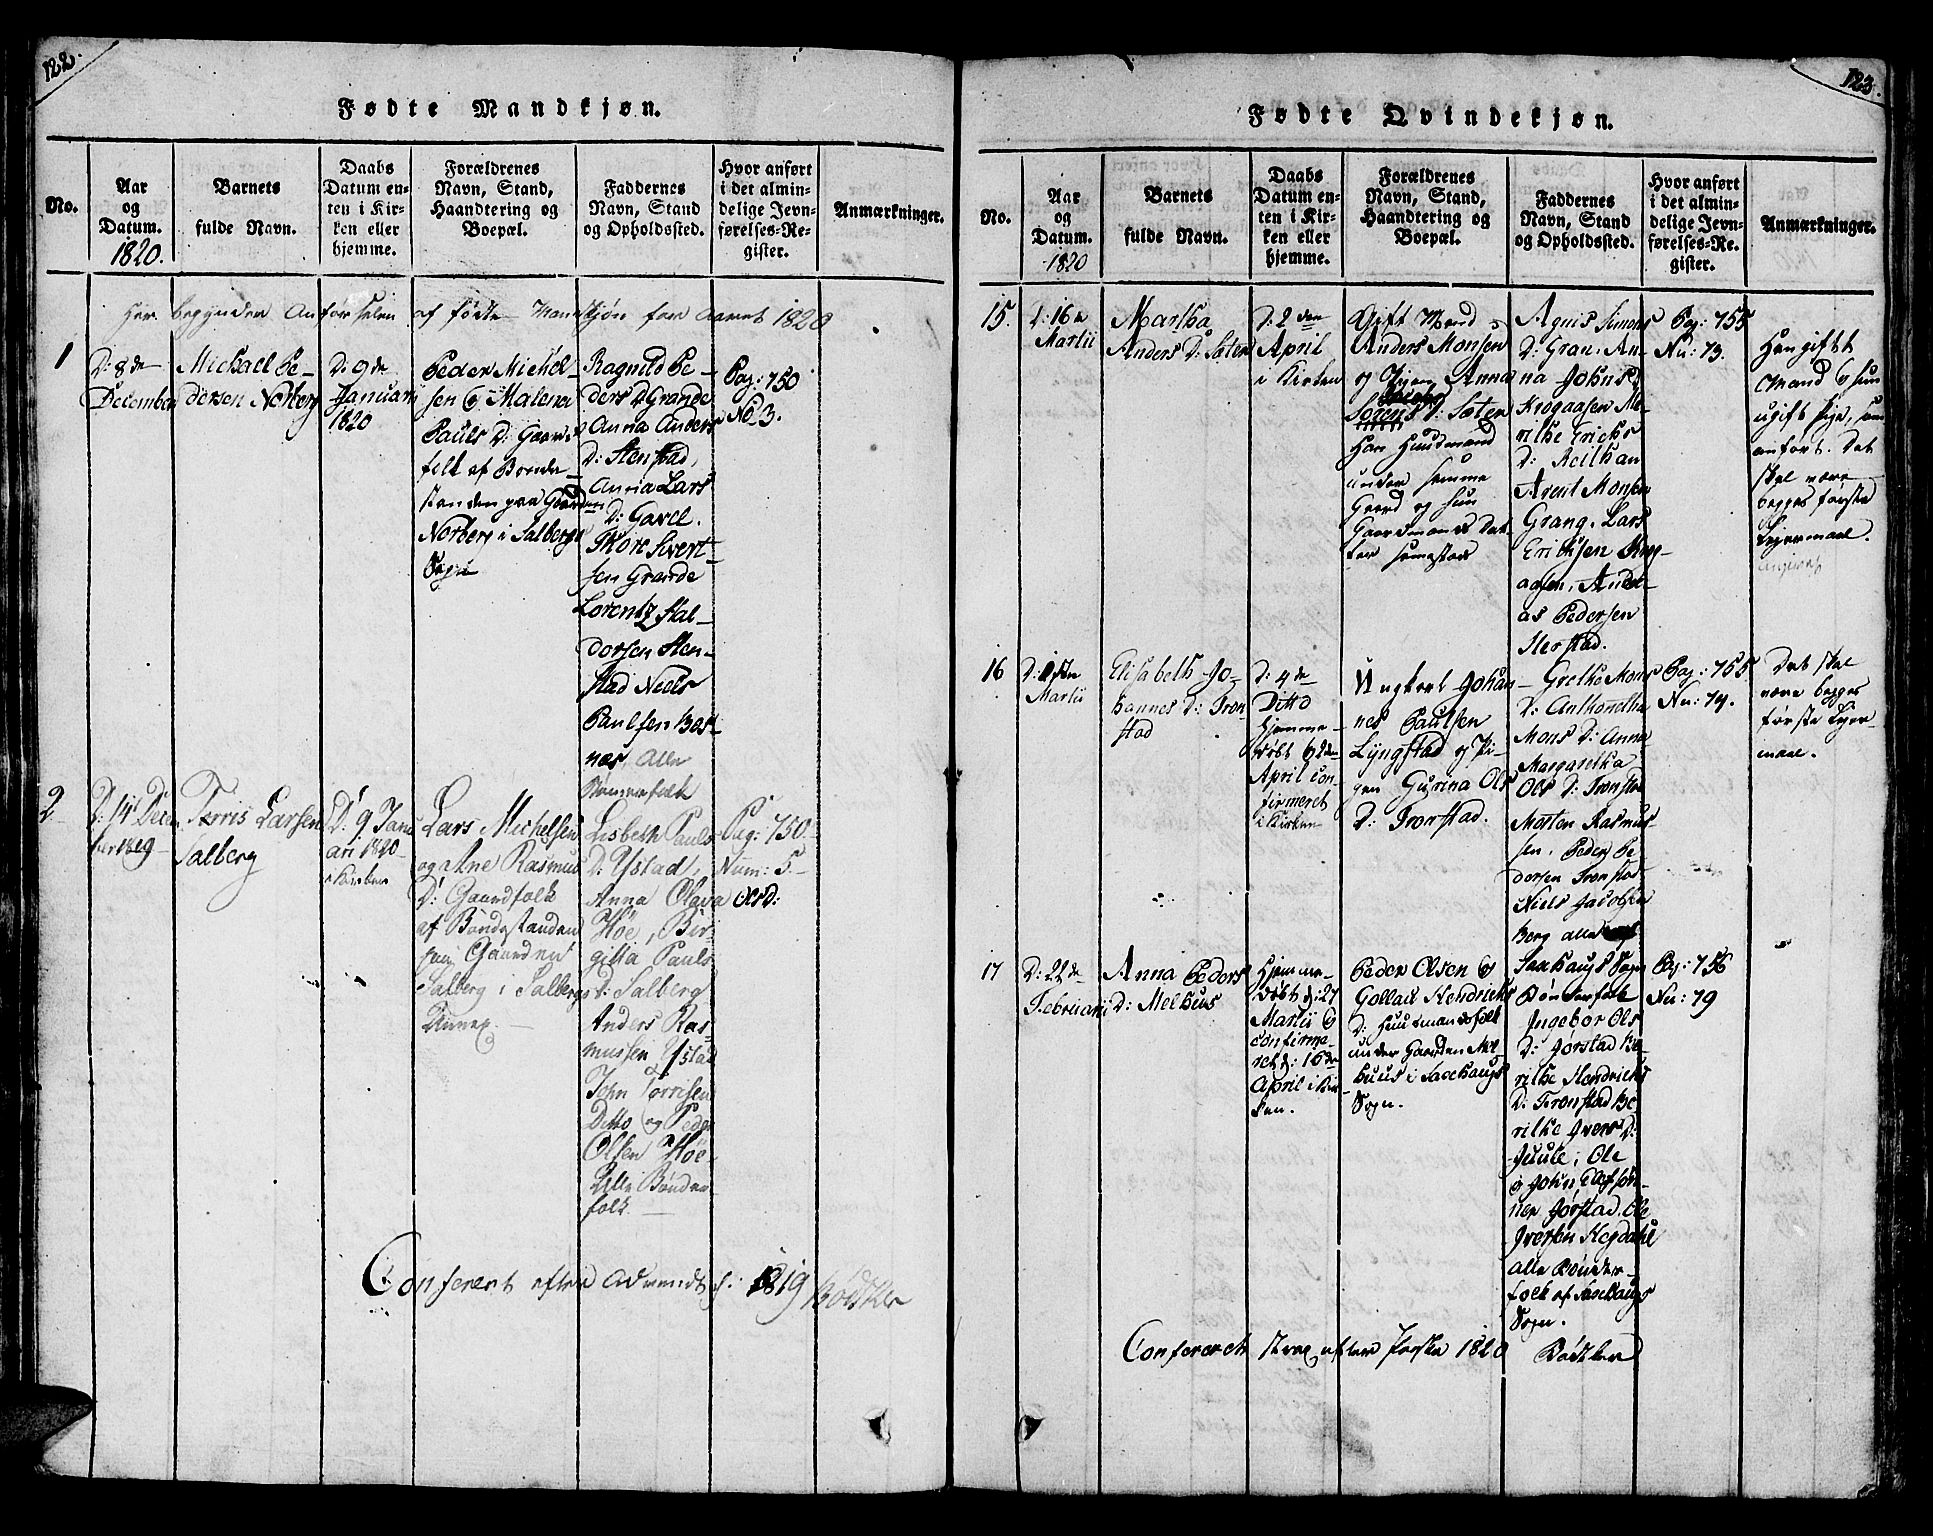 122.
Fødte Mandkjøn.
No.
Aar
og
Datum.
1820.
Barnets
fulde Navn.
Daabs
Datum en-
ten i Kir-
ken eller
hjemme.
Forældrenes
Navn, Stand,
Haandtering og
Boepæl.
Faddernes
Navn, Stand
og Opholdssted.
Hvor anført
i det almin-
delige Jevn-
førelses-Re-
gister.
Anmærkninger.
Her begynder Anførselen af fødte Mandkjøn for Aaret 1820
1
D: 8de
December
Michael Pe-
dersen Norberg
D: 9de
Januarii
1820
Peder Michel-
sen og Malena
Pauls D: Gaard-
folk af Bonde-
standen paa Gaarden
Norberg i Salbergs
Sogn
Ragnild Pe-
ders D: Grande
Anna Anders
D: Stenstad,
Anna Lars
D: Gavel.
Tkore Sivert-
sen Grande
Lorentz Hal-
dorsen Sten-
stad Niels
Paulsen Bas-
næs, Alle
Bønderfolk
Pag: 750
No 3.
2
D: 14 Decem
ber 1819
Torris Larsen
Salberg
D: 9 Janu
ari 1820
i Kirken
Lars Michelsen
og Ane Rasmus
D: Gaardfolk
af Bondestanden
paa Gaarden
Salberg i Salbergs
Annex.
Lisbeth Pauls
D: Ystad,
Anna Olava
Høe, Bir-
gitta Pauls
D: Salberg
Anders Ras-
mussen Ystad
John Torrisen
Ditto og Peder
Olsen Høe
Alle Bønder-
folk.
Pag: 750
Num: 5
Conferert efter Advendt 1819 Bødtker
123.
Fødte Qvindekjøn.
No.
Aar
og
Datum.
1820
Barnets
fulde Navn.
Daabs
Datum en-
ten i Kir-
ken eller
hjemme.
Forældrenes
Navn, Stand,
Haandtering og
Boepæl.
Faddernes
Navn, Stand
og Opholdssted.
Hvor anført
i det almin-
delige Jevn-
førelses-Re-
gister.
Anmærkninger.
15.
D: 16
Martii
Martha
Anders D: Sæter
D: 2den
April
i Kirken
Gift Mand
Anders Monsen
og Pigen Anna
Sørens D: Sæter
Han Huusmand
under samme
Gaard og hun
Gaardmands Dat-
ter
Agnis Simons
D: Gran, An-
na Johns D:
Krogaasen Me-
rithe Erichs
D: Reithan
Arent Monsen
Grang, Lars
Erichsen Krog-
aasen, Andre-
as Pedersen
Herstad.
Pag: 755
Nu: 73.
Han gift
Mand og hun
ugift Pige, som
anført. Det
skal være
begges første
Leiermaal.
16
Martii
Elisabeth Jo-
hannes D: Tron-
stad
D: 4de
Ditto
hjemme-
døbt og 2den
April con-
firmeret
i Kirken
Ungkarl Johan-
nes Paulsen
Lÿngstad og Pi-
gen Gurina Ols
D: Tronstad.
Grethe Mons
D:
Mons D: Anna
Margaretha
Ols D: Tronstad
Morten Rasmus-
sen, Peder Pe-
dersen Tronstad
Niels Jacobsen
Berg alle af
Saxhaugs Sogn
Bønderfolk
Pag: 755
Nu: 74.
Det skal
være begges
første Leier-
maal.
17
D: 22de
Februarii
Anna Peders
D: Melhuus
Hjemme-
døbt d: 27
Martii og
confirme-
ret d: 16de
April i Kir-
ken.
Peder Olsen og
Gollau Hendrichs
D: Huusmandsfolk
under Gaarden Mel-
huus i Saxehaugs
Sogn.
Ingebor Ols
D: Jørstad Be-
rithe Hendrichs
D: Tronstad Be-
rithe Ivers D:
Juule, Ole
og John Olafsøn-
ner Jørstad, Ole
Iversen Hegdahl
alle Bønder-
folk af Saxehaugs
Sogn.
Pag: 756
Nu: 79
Confereret strax efter Paaske 1820 Bødtker